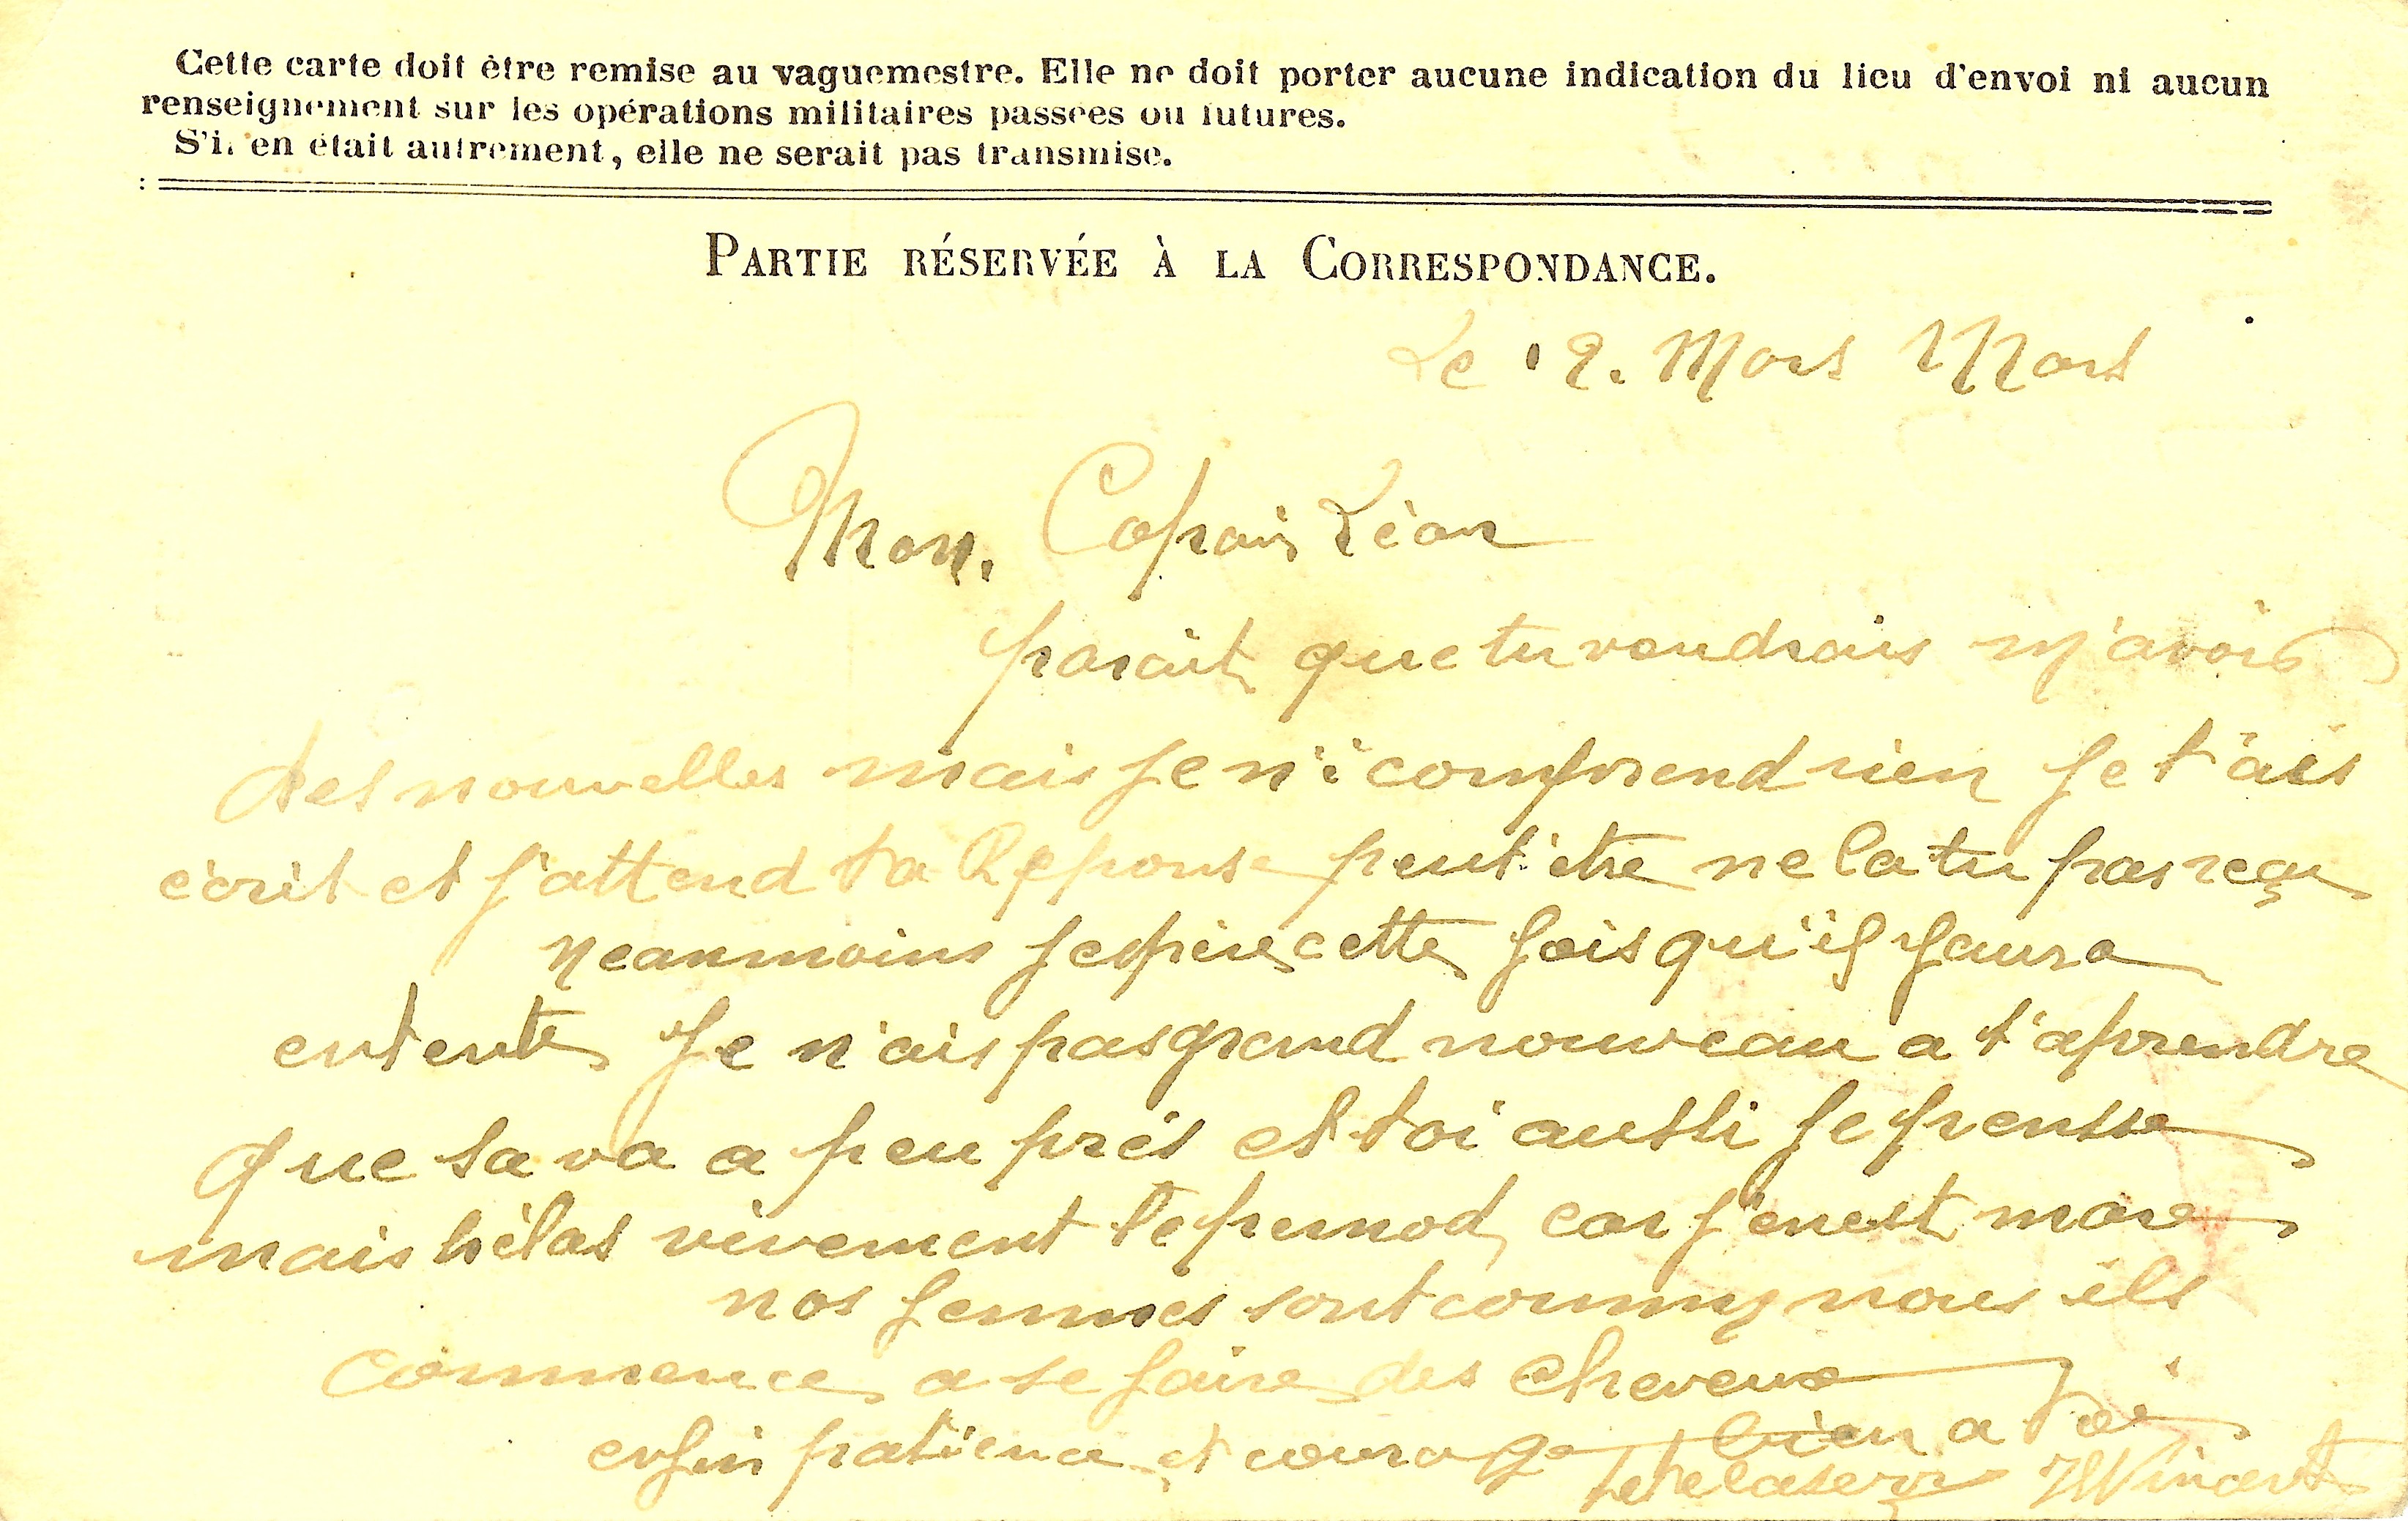 Cette carte doit être remise au vaguemestre. Elle ne doit porter aucune indication du lieu d'envoi ni aucun
renseignement sur les opérations militaires passées ou futures.
S'il en était autrement, elle ne serait pas transmise.
PARTIE RÉSERVÉE À LA CORRESPONDANCE.
Le 12. Mars Mars
Mon. Copain Léon
parait que tu voudrais m'avoir
des nouvelles mais je n'i comprend rien je t'ais
écrit et j'attend ta Reponse peut être ne la tu pas reçu
Neanmoins jespère cette fois qu'il jaura
entente Je n'ais pas grand nouveau a t'aprendre
que sa va a peu prés et toi aussi je pensse
mais hélas vivement le pernod car j'en est mare
nos femmes sont comme nous ils
commence a se faire des cheveux
enfin patience et courage bien a toi
je te la serre